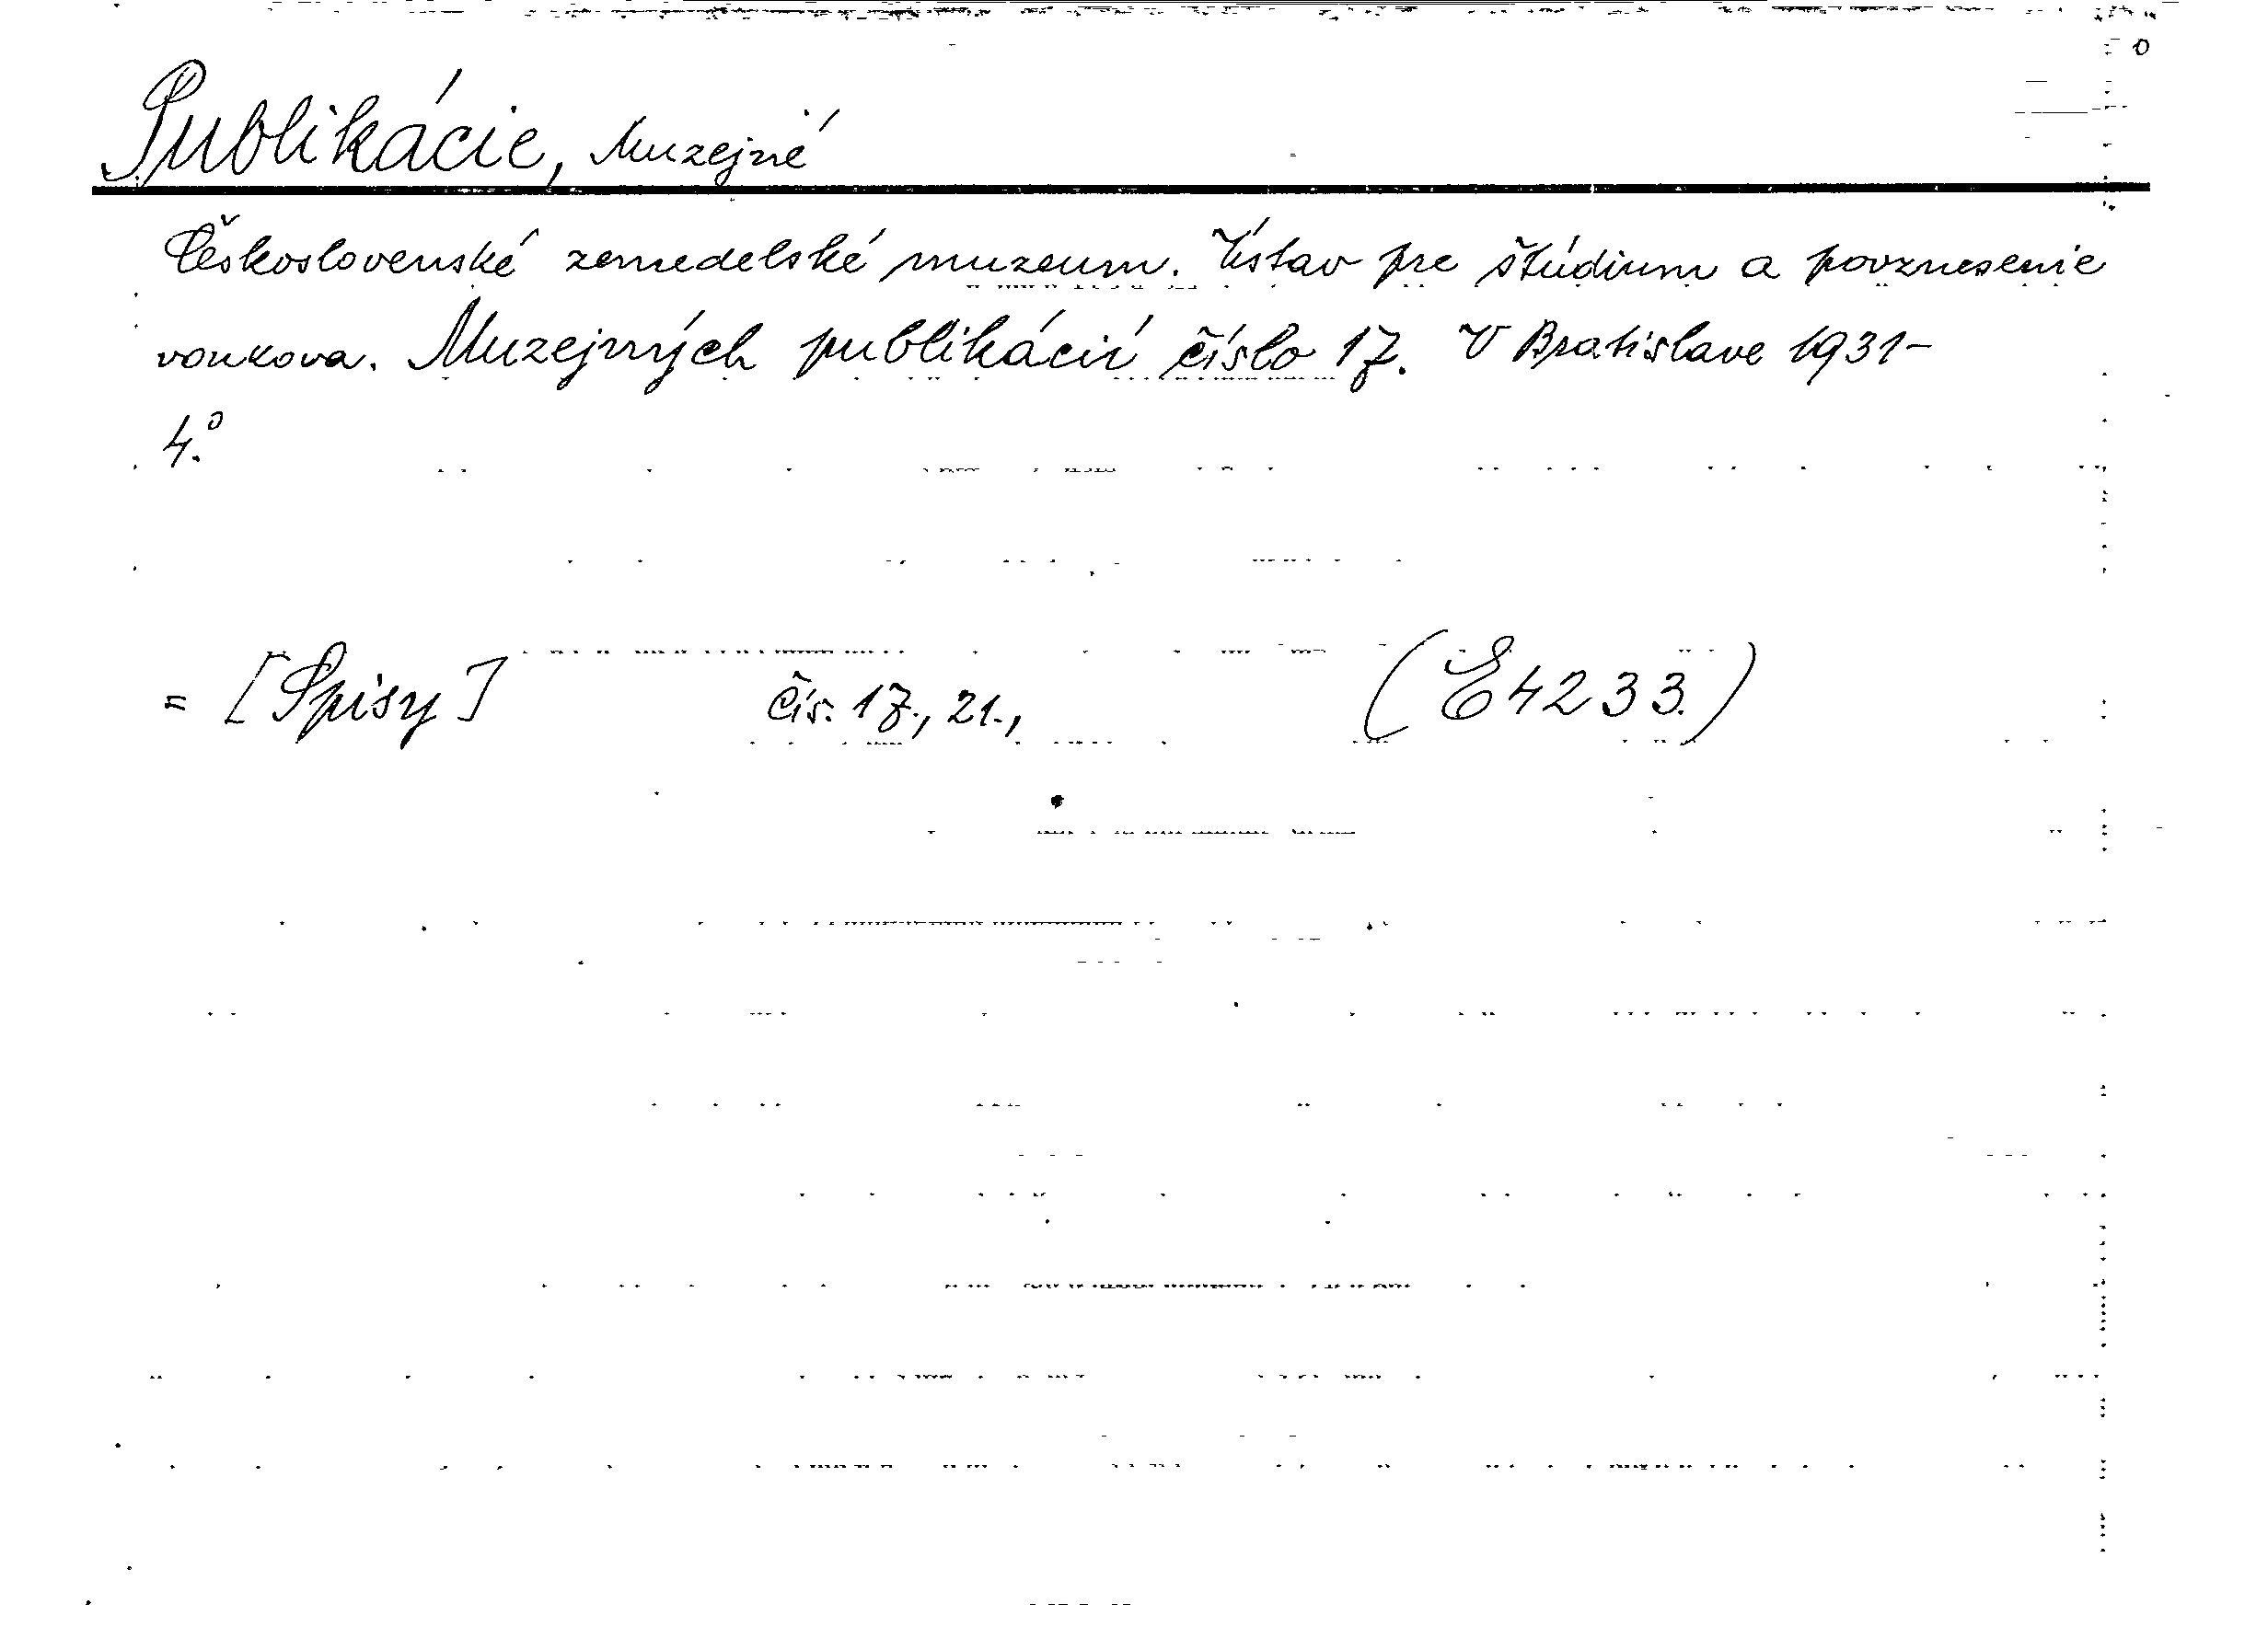 Publikácie, Muzejné
Československé zemedelské muzeum. Ústav pre štúdium a povznesenie
vonkova. Muzejných publikácií číslo 17. V Bratislave 1931-
4.°
= [Spisy] čís. 17., 21., (E4233.)